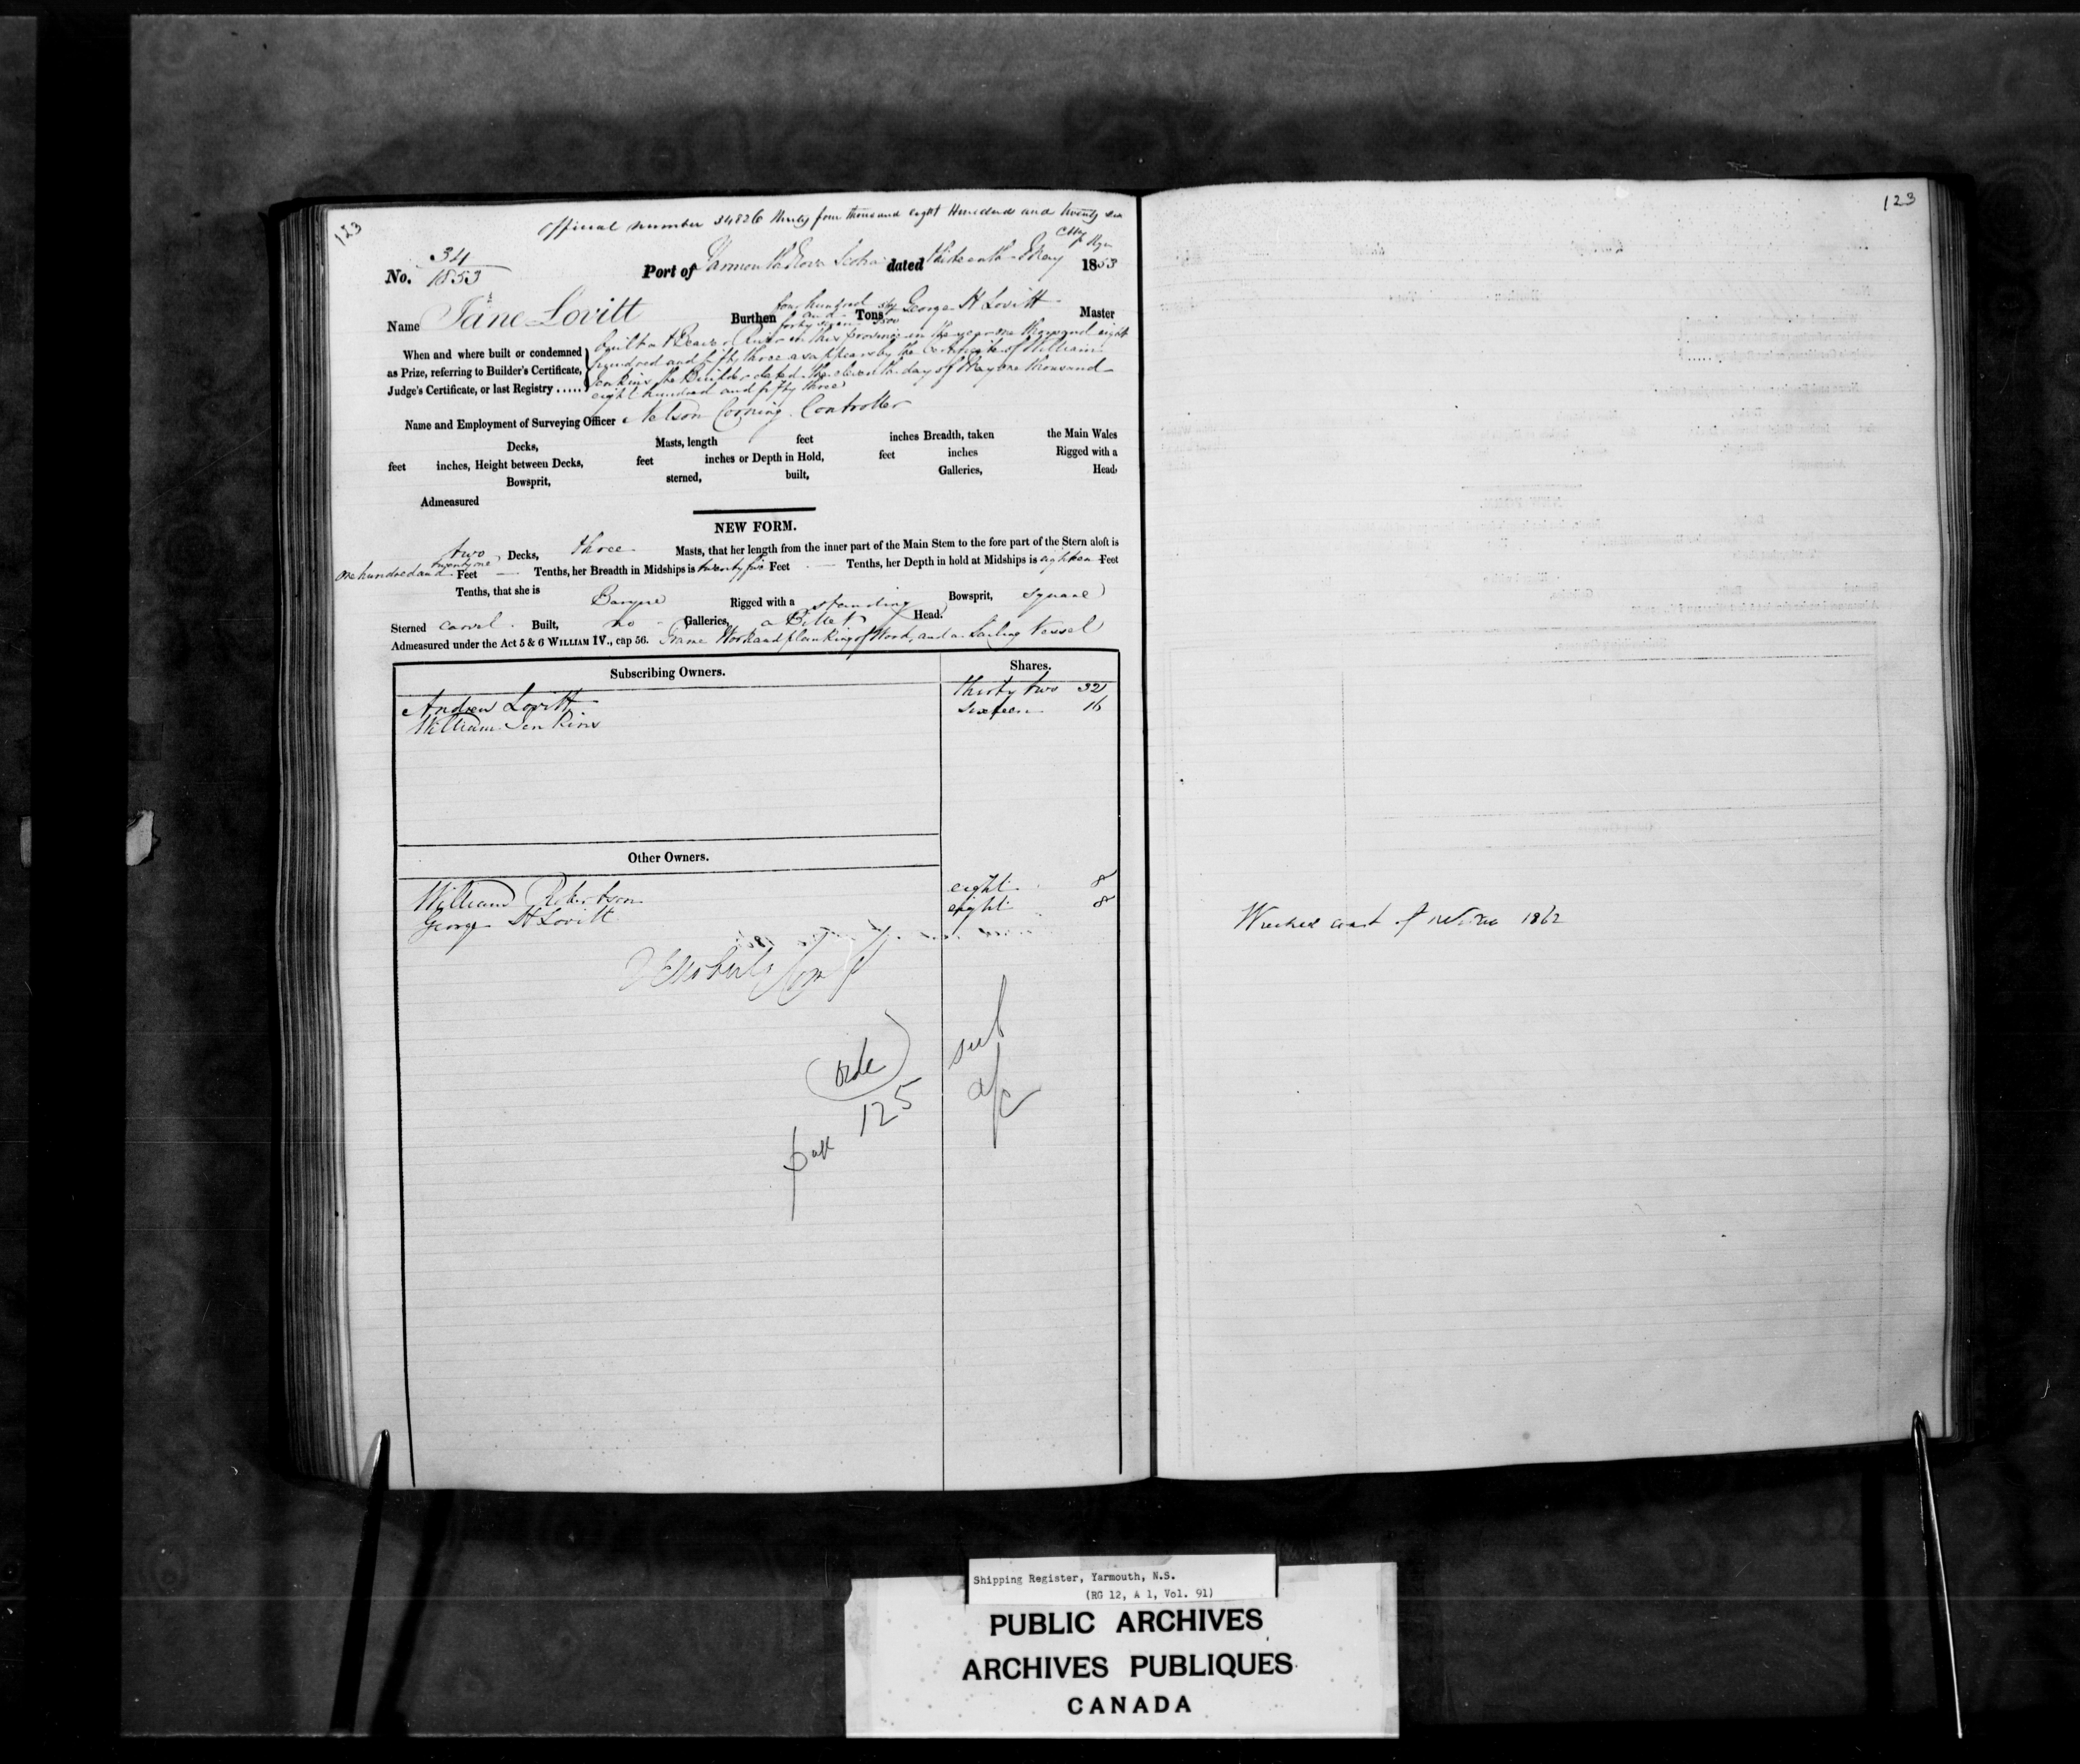 123
Official number 34826 thirty four thousand eight Hundred and twenty six
No. 34 1853
Port of Yarmouth Nova Scotia dated thirteenth May 1853
Name Jane Lovitt Burthen four hundred and forty seven Tons George H Lovitt Master
When and where built or condemned
as Prize, referring to Builder's Certificate,
Judge's Certificate, or last Registry .....
Built at Beaver River in this Province in the year one thousand eight
hundred and fifty three as appears by the Certificate of William
Jenkins the Builder dated the eleventh day of May one thousand
eight hundred and fifty three
Name and Employment of Surveying Officer Nelson Corning Controller
Decks, Masts, length feet inches Breadth, taken the Main Wales
feet inches, Height between Decks, feet inches or Depth in Hold, feet inches Rigged with a
Bowsprit, sterned, built, Galleries, Head,
Admeasured
NEW FORM.
two Decks, three Masts, that her length from the inner part of the Main Stem to the fore part of the Stern aloft is
one hundred and twenty one Feet — Tenths, her Breadth in Midships is twenty five Feet — Tenths, her Depth in hold at Midships is eighteen Feet
Tenths, that she is Barque Rigged with a standing Bowsprit, square
Sterned carvel Built, no Galleries, a Billet Head.
Admeasured under the Act 5 & 6 WILLIAM IV., cap 56. Frame Work and planking of Wood, and a Sailing Vessel
Subscribing Owners. Shares.
Andrew Lovitt thirty two 32
William Jenkins sixteen 16
Other Owners.
William Robertson eight 8
George H Lovitt eight 8
125
a/c
123
Wrecked coast of 1862
Shipping Register, Yarmouth, N.S.
(RG 12, A 1, Vol. 91)
PUBLIC ARCHIVES
ARCHIVES PUBLIQUES
CANADA